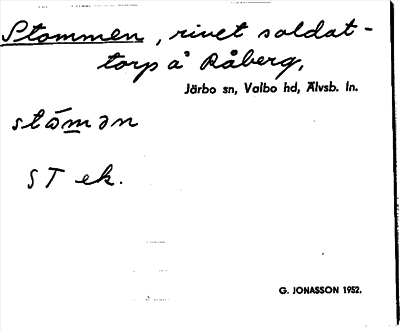 Stommen, rivet soldat-
torp å Råberg,
Järbo sn, Valbo hd, Älvsb. ln.
ståman
ST ek.
G. JONASSON 1952.